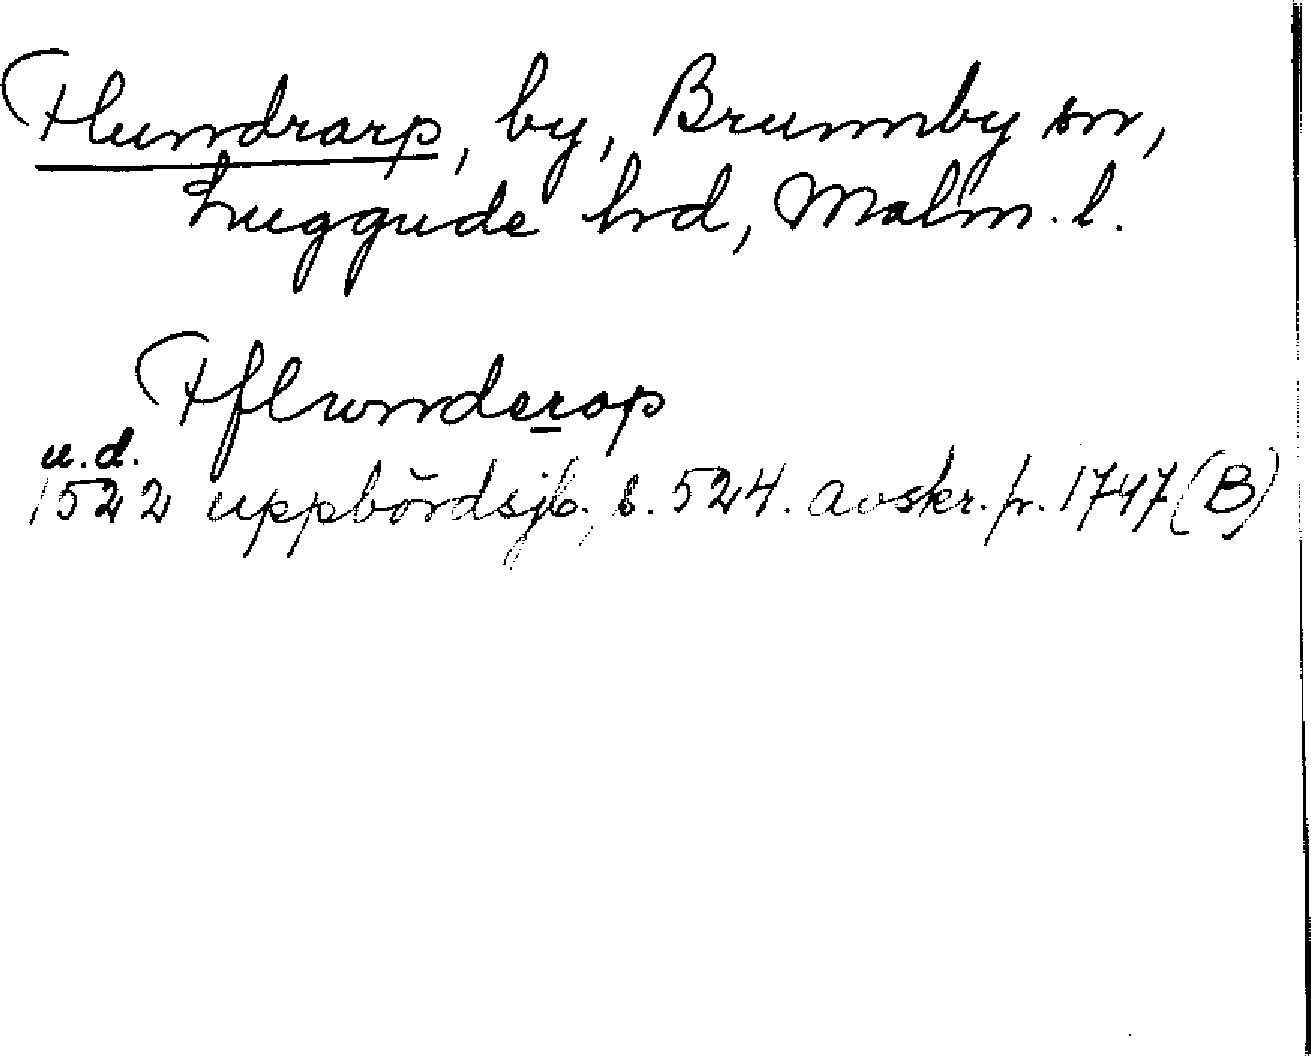 Flundrarp, by, Brunnby sn,
Luggude hd, Malm. l.
Fflwnderop
u.d.
1522 uppbördsjb., s. 524. avskr. fr. 1747 (B)